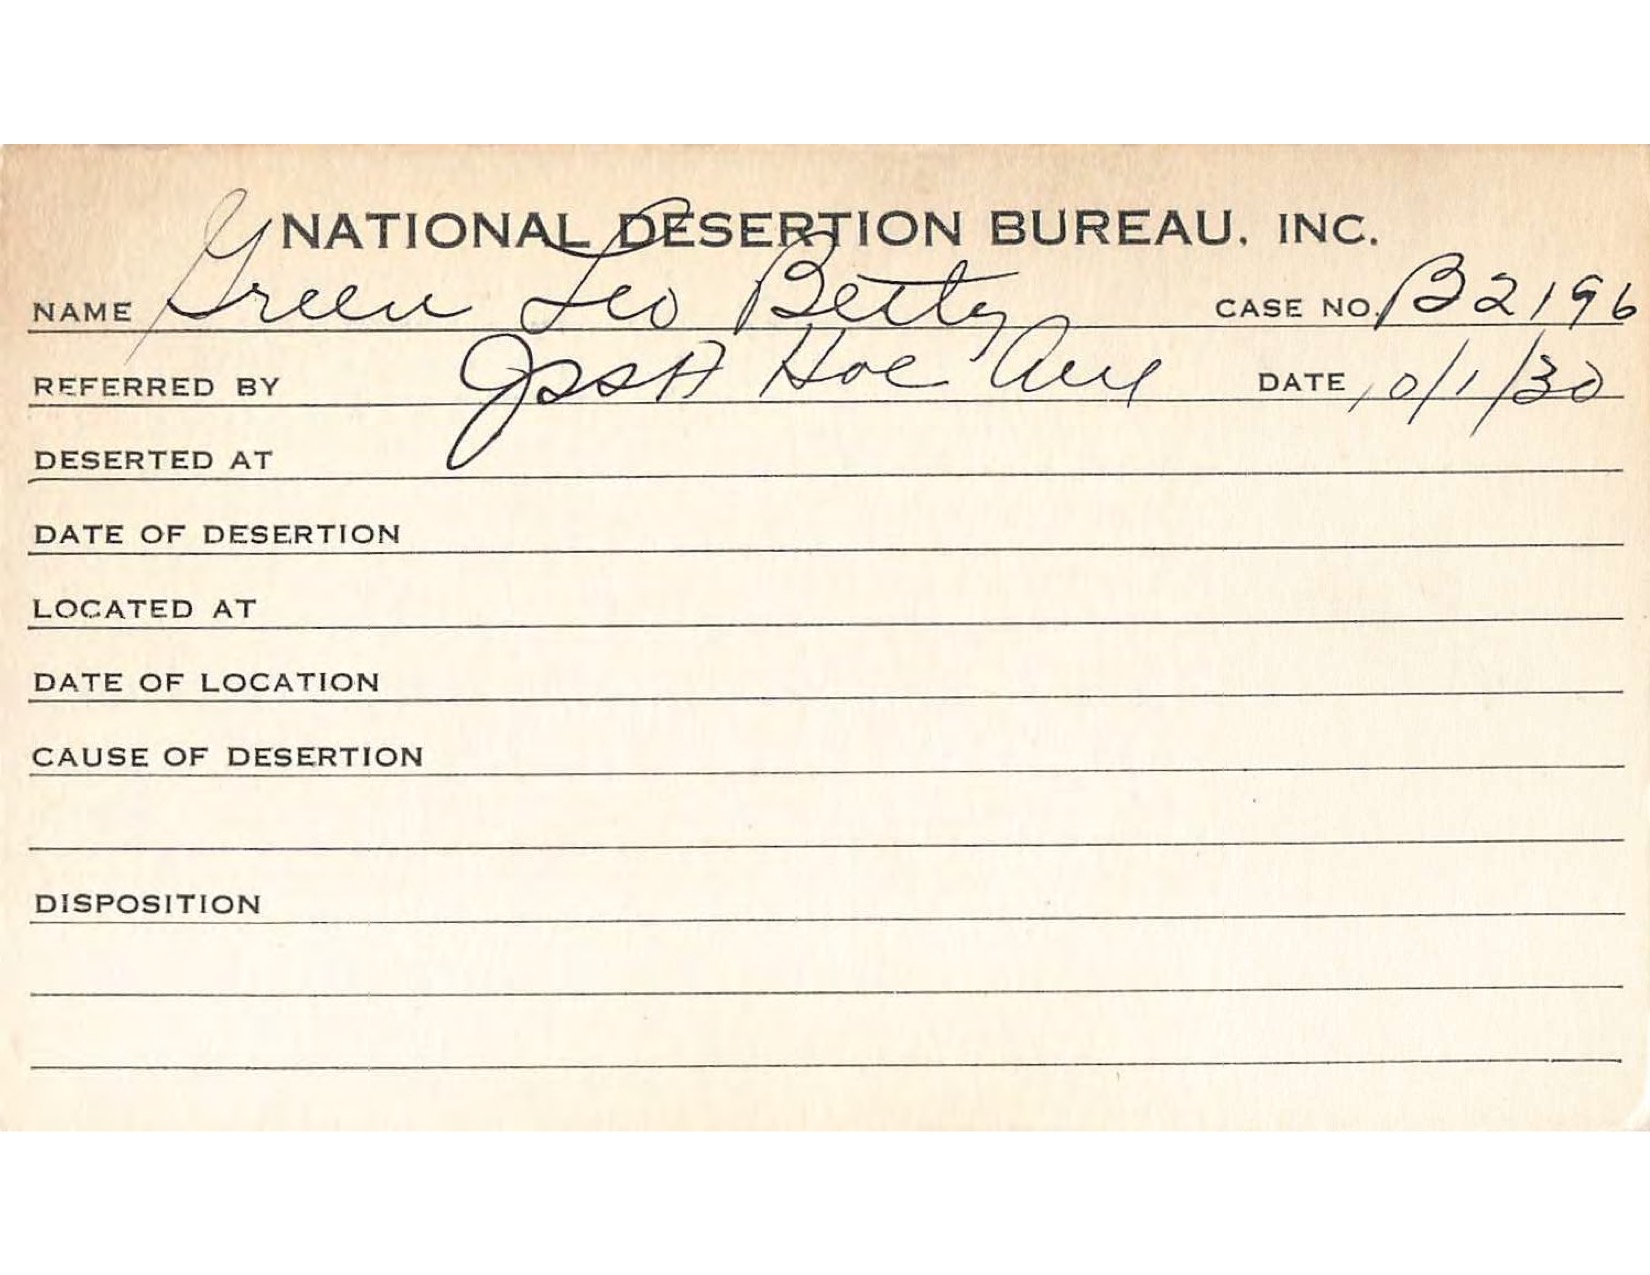 NATIONAL DESERTION BUREAU, INC.
NAME Green Leo Betty CASE NO. B2196
REFERRED BY JSSA Hoe Ave DATE 10/1/30
DESERTED AT
DATE OF DESERTION
LOCATED AT
DATE OF LOCATION
CAUSE OF DESERTION
DISPOSITION